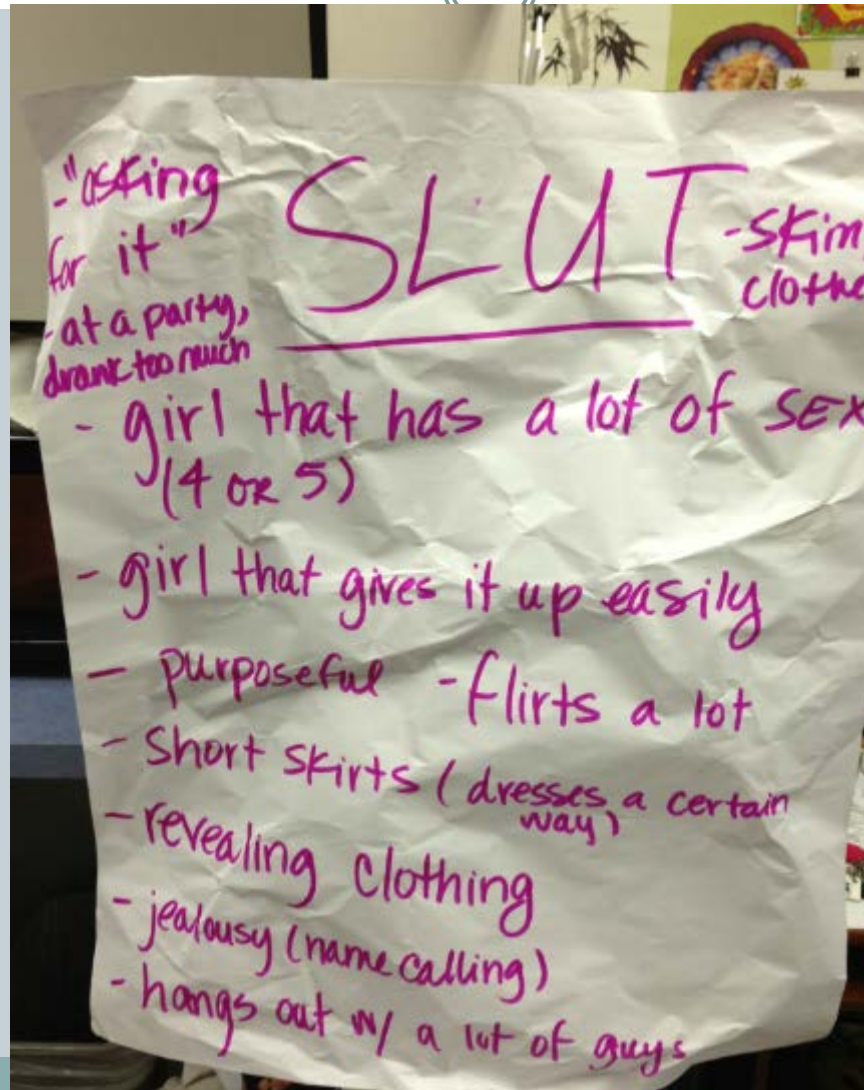 -"asking
for it"
- at a party,
drank too much
SLUT
-skim
clothe
- girl that has a lot of SEX
(4 OR 5)
- girl that gives it up easily
- purposeful - flirts a lot
- short skirts (dresses a certain
way)
- revealing clothing
- jealousy (name calling)
- hangs out w/ a lot of guys